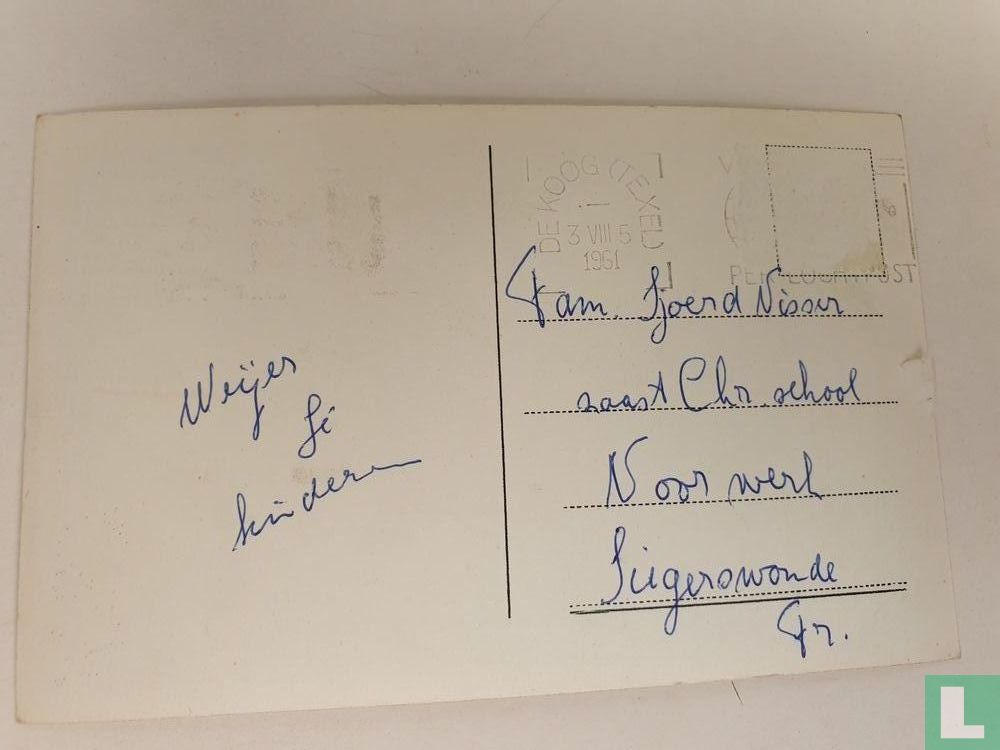 DE KOOG (TEXEL)
3 VIII 5
1961
PER LUCHTPOST
Fam. Sjoerd Visser
naast Chr. school
Noor
Siegerswoude
Fr.
Weijer
kinderen
L